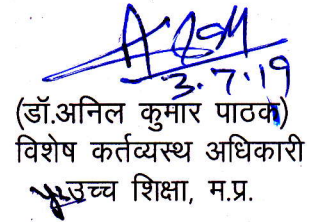 3.7.19
(डॉ.अनिल कुमार पाठक)
विशेष कर्तव्यस्थ अधिकारी
उच्च शिक्षा, म.प्र.